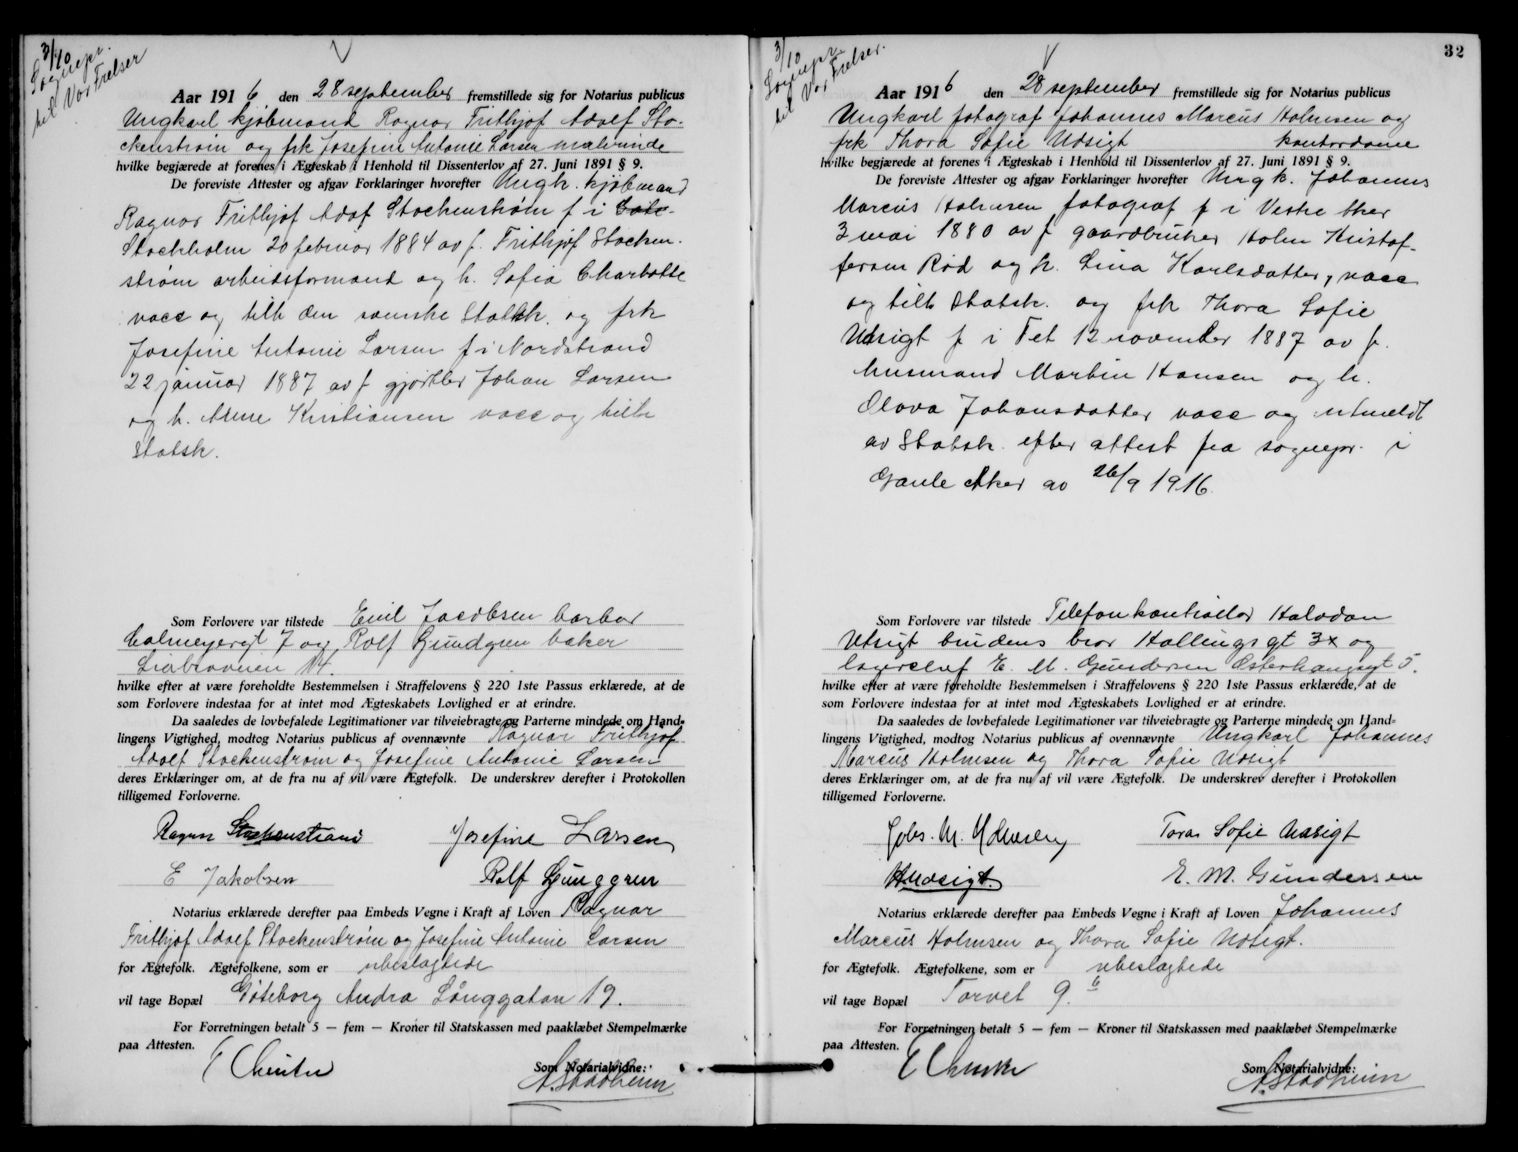 3/10
Sognepr.
til Vor Frelser
Aar 1916 den 28 september fremstillede sig for Notarius publicus
Ungkarl kjøbmand Ragnar Frithjof Adolf Sto-
ckenstrøm og frk Josefine Antonie Larsen
hvilke begjærede at forenes i Ægteskab i Henhold til Dissenterlov af 27. Juni 1891 § 9.
De foreviste Attester og afgav Forklaringer hvorefter Ungk. kjøbmand
Ragnar Frithjof Adof Stockenstrøm f i
Stockholm 20 februar 1884 av f. Frithjof Stocken-
strøm arbeidsformand og h. Sofia Charlotte
vacc og tilh den svenske Statsk. og frk
Josefine Antonie Larsen f i Nordstrand
22 januar 1887 av f gjørtler Johan Larsen
og h. Anne Kristiansen vacc og tilh
Statsk.
Som Forlovere var tilstede Emil Jacobsen barber
Calmeyergt 7 og Rolf Gundgren baker
14.
hvilke efter at være foreholdte Bestemmelsen i Straffelovens § 220 1ste Passus erklærede, at de
som Forlovere indestaa for at intet mod Ægteskabets Lovlighed er at erindre.
Da saaledes de lovbefalede Legitimationer var tilveiebragte og Parterne mindede om Hand-
lingens Vigtighed, modtog Notarius publicus af ovennævnte Ragnar Frithjof
Adolf Stockenstrøm og Josefine Antonie Larsen
deres Erklæringer om, at de fra nu af vil være Ægtefolk. De underskrev derefter i Protokollen
tilligemed Forloverne.
Ragnar Stockenstrøm Josefine Larsen
E Jakobsen Rolf Ljunggren
Notarius erklærede derefter paa Embeds Vegne i Kraft af Loven Ragnar
Frithjof Adolf Stockenstrøm og Josefine Antonie Larsen
for Ægtefolk. Ægtefolkene, som er ubeslægtede
vil tage Bopæl Gøteborg Andra Långgatan 19.
For Forretningen betalt 5 — fem — Kroner til Statskassen med paaklæbet Stempelmærke
paa Attesten.
Som Notarialvidne:
A. Stadheim
32
3/10
Sognepr
til Vor Frelser.
Aar 1916 den 28 september fremstillede sig for Notarius publicus
Ungkarl fotograf Johannes Marcus Holmsen og
frk Thora Sofie Udsigt kontordame
hvilke begjærede at forenes i Ægteskab i Henhold til Dissenterlov af 27. Juni 1891 § 9.
De foreviste Attester og afgav Forklaringer hvorefter Ungk. Johannes
Marcus Holmsen fotograf f i Vestre
3 mai 1880 av f gaardbruker Holm Kristof-
fersen Rød og h. Lina Karlsdatter, vacc
og tilh Statsk. og frk Thora Sofie
Udsigt f i Fet 12 november 1887 av f.
husmand Martin Hansen og h.
Olava Johansdatter vacc og utmeldt
av Statsk. efter attest fra sognepr. i
Gamle Aker av 26/9 1916.
Som Forlovere var tilstede Telefonkontrollør Halvdan
Utsigt brudens bror Hallings gt 3x og
lagerchef E. M. Gundersen Østerhausgt 5.
hvilke efter at være foreholdte Bestemmelsen i Straffelovens § 220 1ste Passus erklærede, at de
som Forlovere indestaa for at intet mod Ægteskabets Lovlighed er at erindre.
Da saaledes de lovbefalede Legitimationer var tilveiebragte og Parterne mindede om Hand-
lingens Vigtighed, modtog Notarius publicus af ovennævnte Ungkarl Johannes
Marcus Holmsen og Thora Sofie Udsigt
deres Erklæringer om, at de fra nu af vil være Ægtefolk. De underskrev derefter i Protokollen
tilligemed Forloverne.
Johs. M. Holmsen Tora Sofie Udsigt
H Udsigt. E. M. Gundersen
Notarius erklærede derefter paa Embeds Vegne i Kraft af Loven Johannes
Marcus Holmsen og Thora Sofie Udsigt.
for Ægtefolk. Ægtefolkene, som er ubeslægtede
vil tage Bopæl Torvet 9. b
For Forretningen betalt 5 — fem — Kroner til Statskassen med paaklæbet Stempelmærke
paa Attesten.
Som Notarialvidne:
A. Stadheim